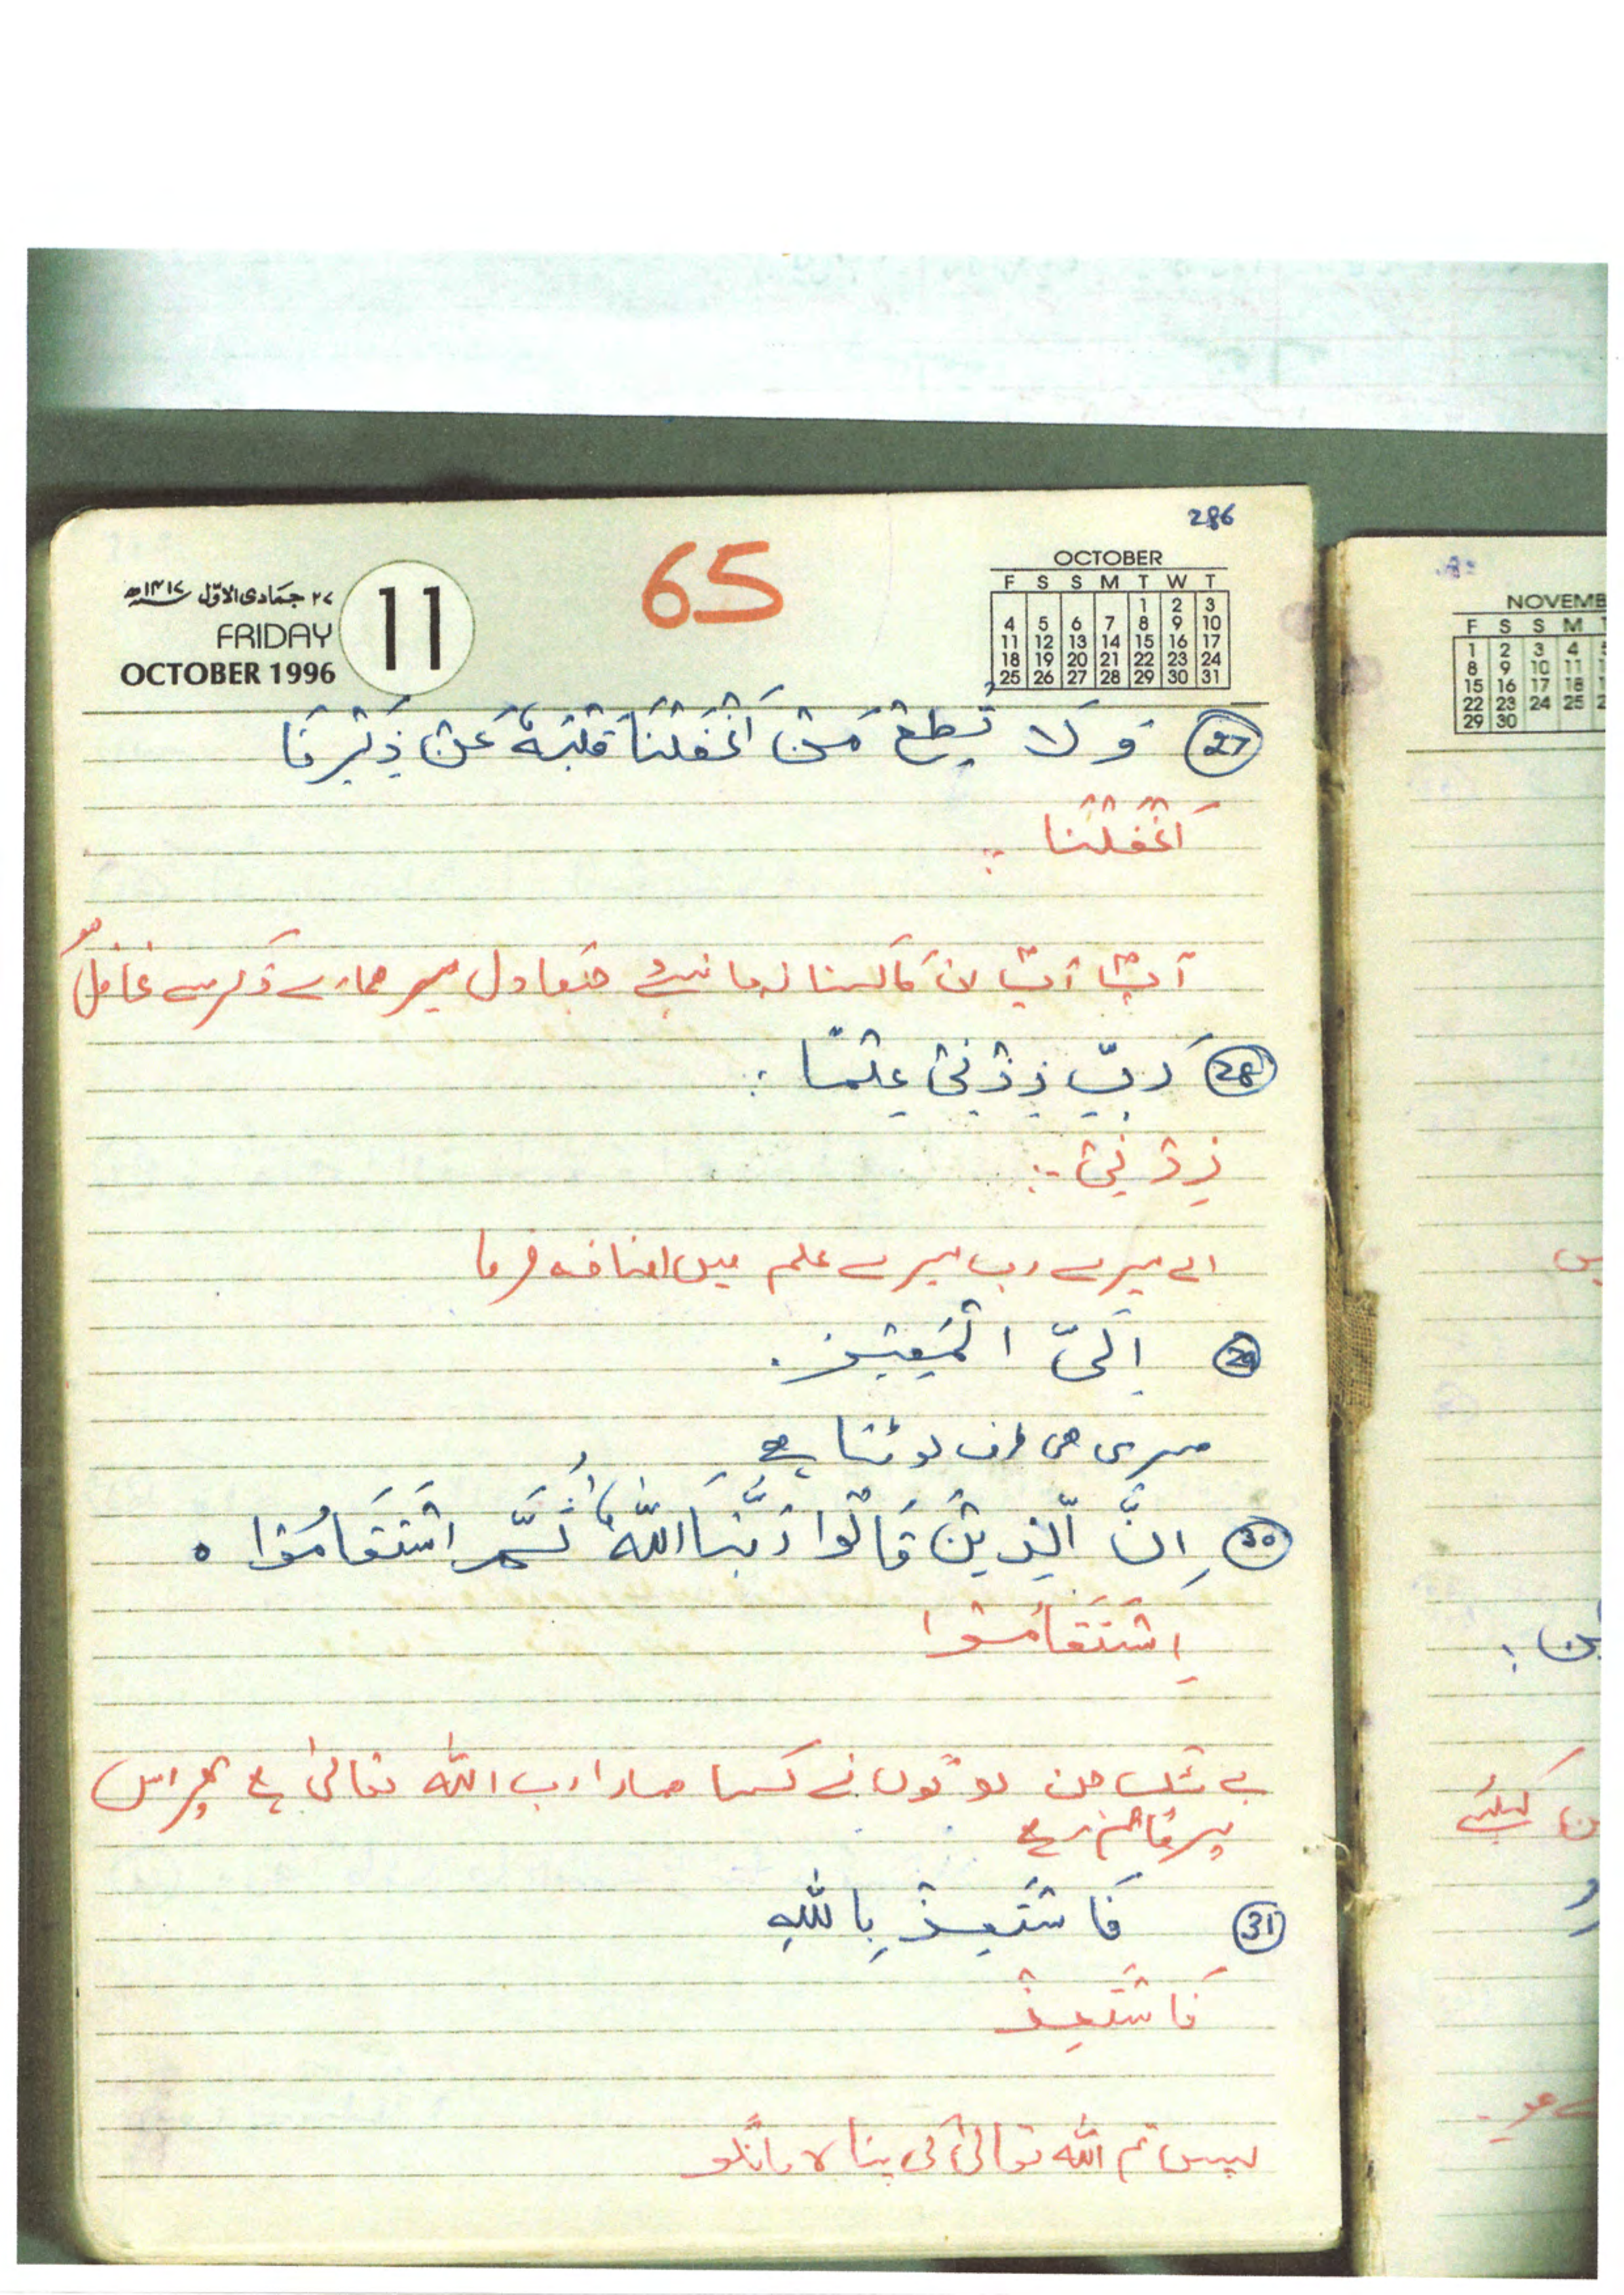 286
65
۲۷ جمادی الاوّل ۱۴۱۷ھ
FRIDAY
OCTOBER 1996
11
OCTOBER
F S S M T W T
1 2 3
4 5 6 7 8 9 10
11 12 13 14 15 16 17
18 19 20 21 22 23 24
25 26 27 28 29 30 31
(27) وَلَا تُطِعْ مَنْ اَغْفَلْنَا قَلْبَهٗ عَنْ ذِكْرِنَا
اَغْفَلْنَا :
آپ ان کا کہنا نہ مانیئے جنکا دل ہمارے ذکر سے غافل
(28) رَبِّ زِدْنِیْ عِلْمًا :
زِدْنِیْ :-
اے میرے رب میرے علم میں اضافہ فرما
(29) اِلَیَّ الْمَصِیْر .
میری ہی طرف لوٹنا ہے
(30) اِنَّ الَّذِیْنَ قَالُوْا رَبُّنَا اللّٰهُ ثُمَّ اسْتَقَامُوْا ه
اِسْتَقَامُوْا
بے شک جن لوگوں نے کہا ہمارا رب اللّٰہ تعالیٰ ہے پھر اس
پر قائم رہے
(31) فَاسْتَعِذْ بِاللّٰهِ
فَاسْتَعِذْ
پس تم اللّٰہ تعالیٰ کی پناہ مانگو
NOVEMB
F S S M
1 2 3 4
8 9 10 11
15 16 17 18
22 23 24 25
29 30